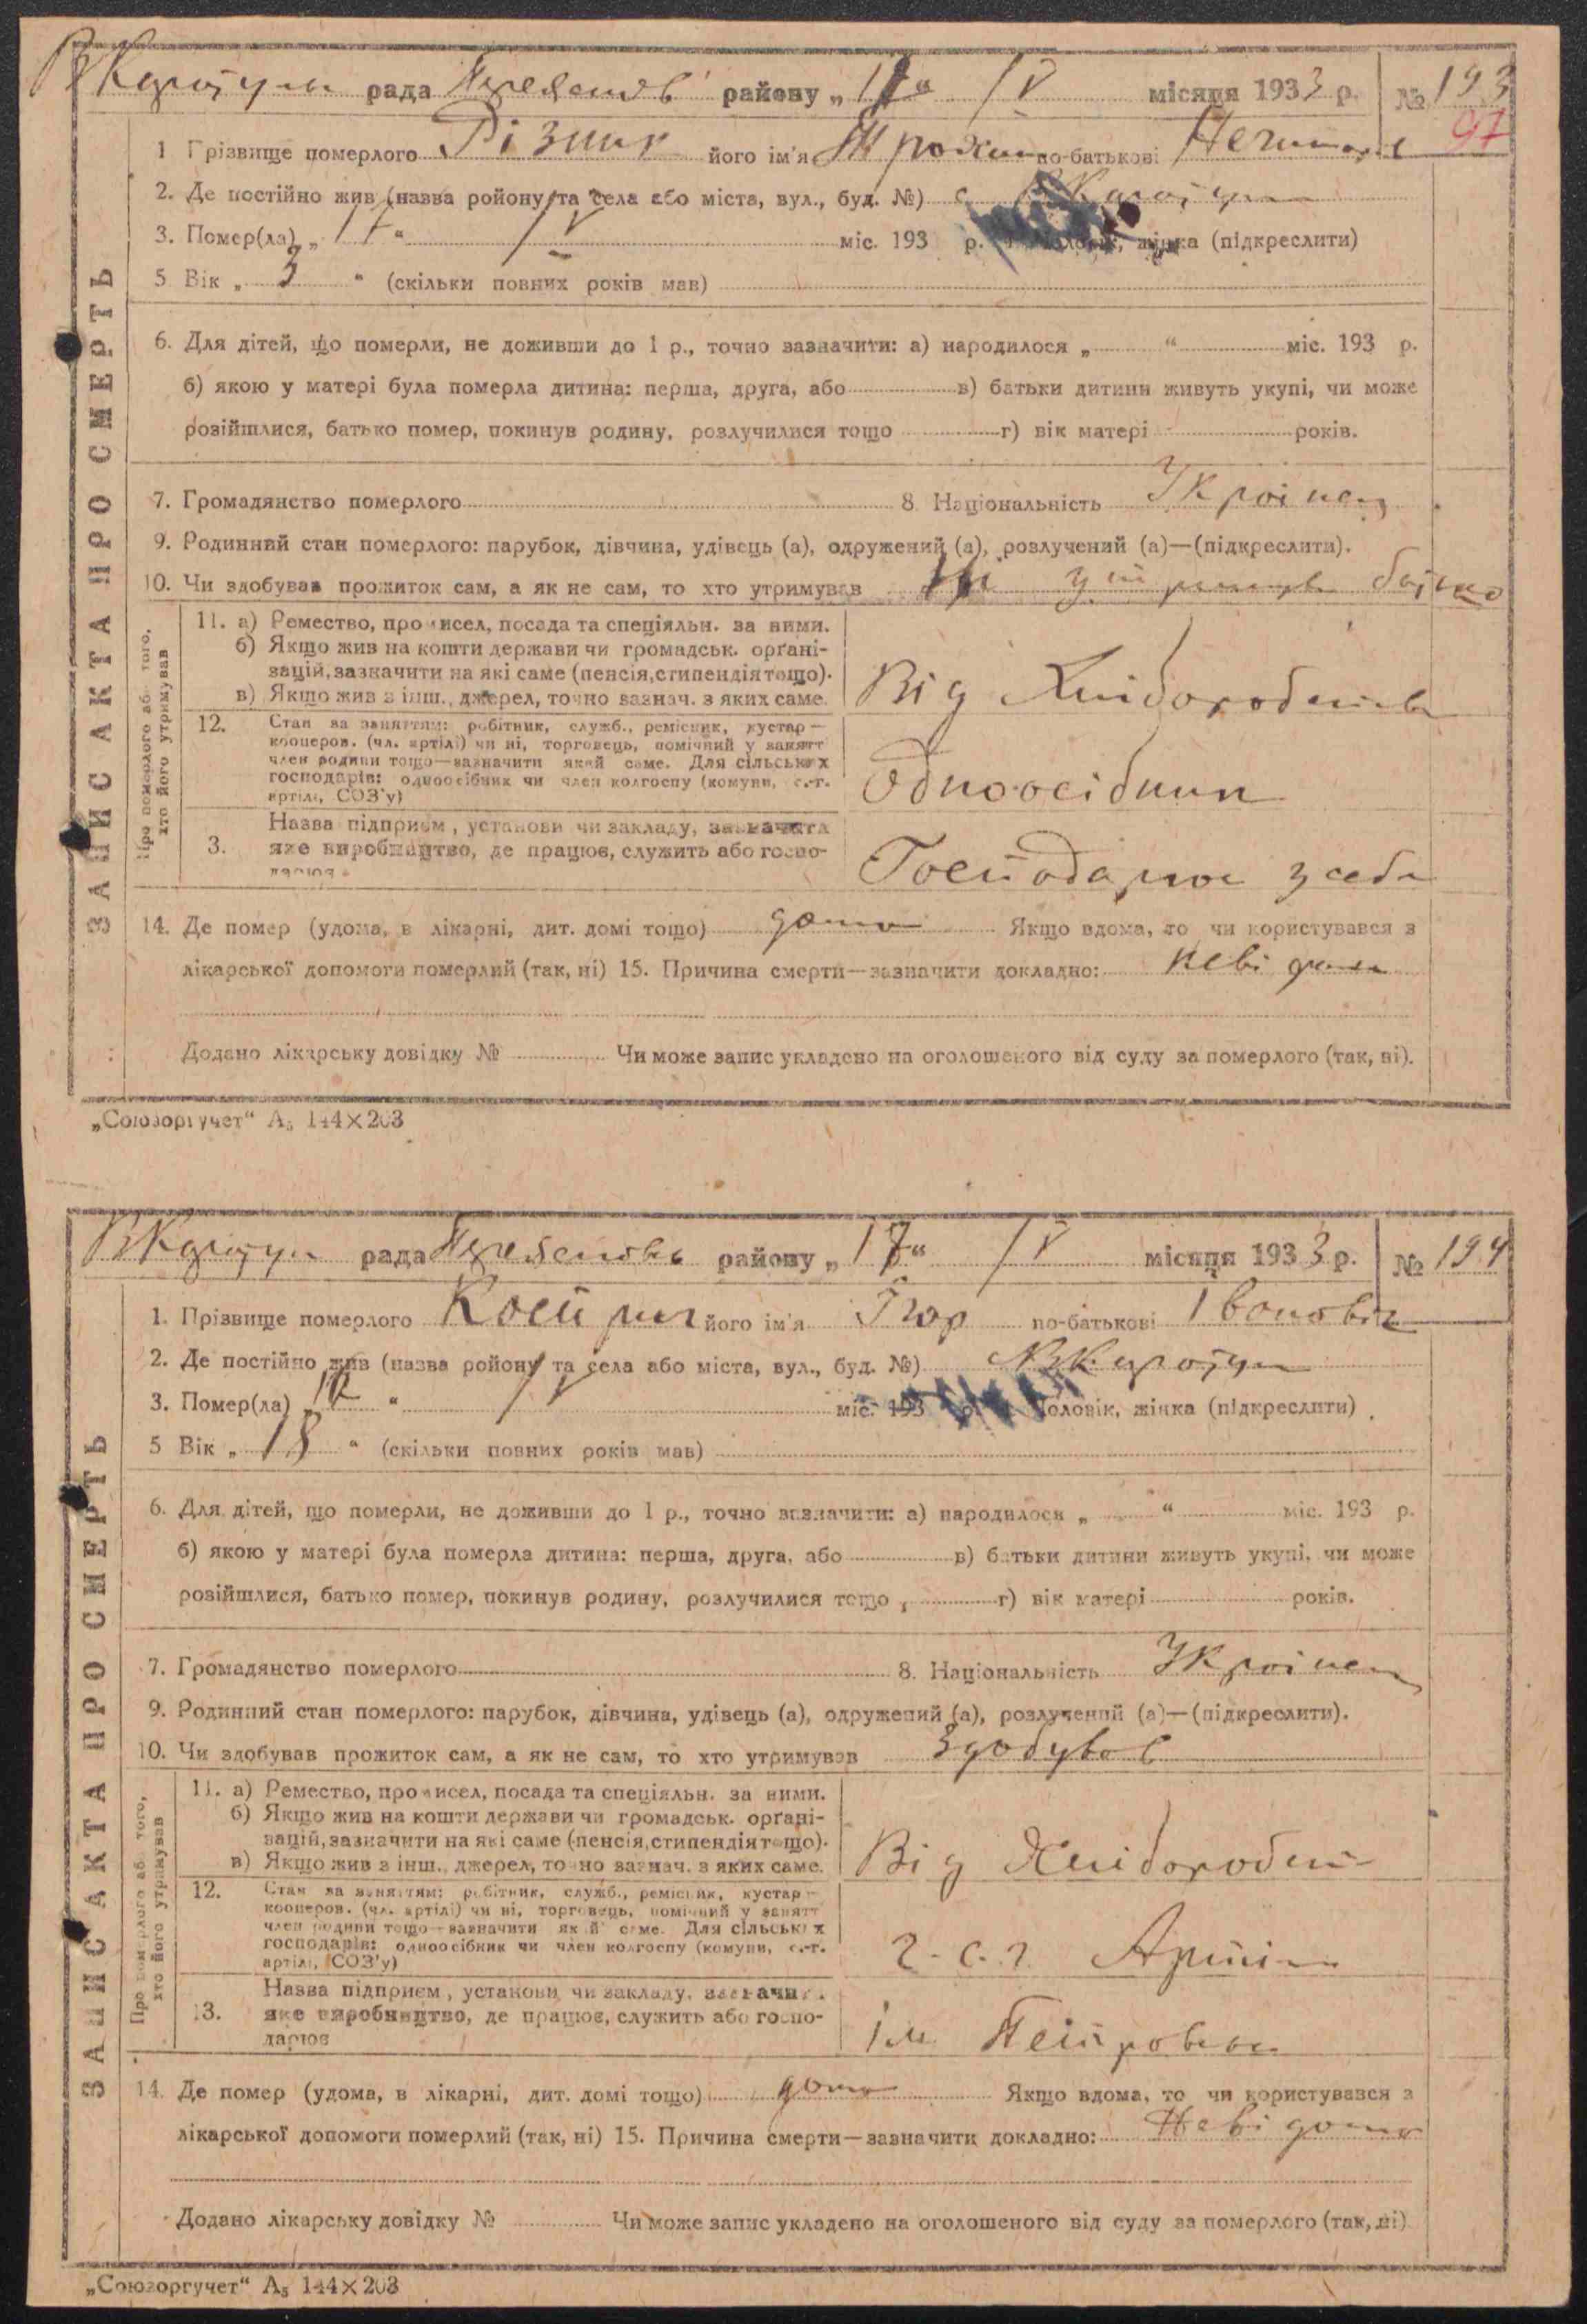 рада району „17“ IV місяця 1933 р. № 193
97
1 Прізвище померлого Різник його ім'я по-батькові
2. Де постійно жив (назва ройону та села або міста, вул., буд. №) с.
3. Помер(ла) „17“ IV міс. 193 р. чоловік, жінка (підкреслити)
5 Вік „3“ (скільки повних років мав)
6. Для дітей, що померли, не доживши до 1 р., точно зазначити: а) народилося „ “ міс. 193 р.
б) якою у матері була померла дитина: перша, друга, або в) батьки дитини живуть укупі, чи може
розійшлися, батько помер, покинув родину, розлучилися тощо г) вік матері років.
7. Громадянство померлого 8. Національність Українец
9. Родинний стан померлого: парубок, дівчина, удівець (а), одружений (а), розлучений (а)—(підкреслити).
10. Чи здобував прожиток сам, а як не сам, то хто утримував Ні утримував батько
ЗАПИС АКТА ПРО СМЕРТЬ
Про померлого або того,
хто його утримував
11. а) Ремество, промисел, посада та спеціяльн. за ними.
б) Якщо жив на кошти держави чи громадськ. орґані-
зацій, зазначити на які саме (пенсія, стипендія тощо).
в) Якщо жив з інш., джерел, точно зазнач. з яких саме.
Від Хліборобства
12. Стан за заняттям: робітник, служб., ремісник, кустар—
кооперов. (чл. артілі) чи ні, торговець, помічний у занятт
член родини тощо—зазначити який саме. Для сільських
господарів: одноосібник чи член колгоспу (комуни, с.-г.
артілі, СОЗ'у)
Одноосібник
Назва підприєм, установи чи закладу, зазначити
3. яке виробництво, де працює, служить або госпо-
дарює
Господарює з себе
14. Де помер (удома, в лікарні, дит. домі тощо) дома Якщо вдома, то чи користувався з
лікарської допомоги померлий (так, ні) 15. Причина смерти—зазначити докладно: невідома
Додано лікарську довідку № Чи може запис укладено на оголошеного від суду за померлого (так, ні).
„Союзоргучет“ А₅ 144×203
рада району „17“ IV місяця 1933 р. № 194
1. Прізвище померлого його ім'я Ігор по-батькові Івонович
2. Де постійно жив (назва ройону та села або міста, вул., буд. №)
3. Помер(ла) „ “ IV міс. 193 р. чоловік, жінка (підкреслити)
5 Вік „18“ (скільки повних років мав)
6. Для дітей, що померли, не доживши до 1 р., точно зазначити: а) народилося „ “ міс. 193 р.
б) якою у матері була померла дитина: перша, друга, або в) батьки дитини живуть укупі, чи може
розійшлися, батько помер, покинув родину, розлучилися тощо г) вік матері років.
7. Громадянство померлого 8. Національність Українец
9. Родинний стан померлого: парубок, дівчина, удівець (а), одружений (а), розлучений (а)—(підкреслити).
10. Чи здобував прожиток сам, а як не сам, то хто утримував Здобував
ЗАПИС АКТА ПРО СМЕРТЬ
Про померлого або того,
хто його утримував
11. а) Ремество, промисел, посада та спеціяльн. за ними.
б) Якщо жив на кошти держави чи громадськ. орґані-
зацій, зазначити на які саме (пенсія, стипендія тощо).
в) Якщо жив з інш., джерел, точно зазнач. з яких саме.
Від Хліборобст
12. Стан за заняттям: робітник, служб., ремісник, кустар—
кооперов. (чл. артілі) чи ні, торговець, помічний у занятт
член родини тощо—зазначити який саме. Для сільських
господарів: одноосібник чи член колгоспу (комуни, с.-г.
артілі, СОЗ'у)
Ч. с. г. Артілі
Назва підприєм, установи чи закладу, зазначити
13. яке виробництво, де працює, служить або госпо-
дарює
ім Петровськ
14. Де помер (удома, в лікарні, дит. домі тощо) дома Якщо вдома, то чи користувався з
лікарської допомоги померлий (так, ні) 15. Причина смерти—зазначити докладно: Невідома
Додано лікарську довідку № Чи може запис укладено на оголошеного від суду за померлого (так, ні)
„Союзоргучет“ А₅ 144×203